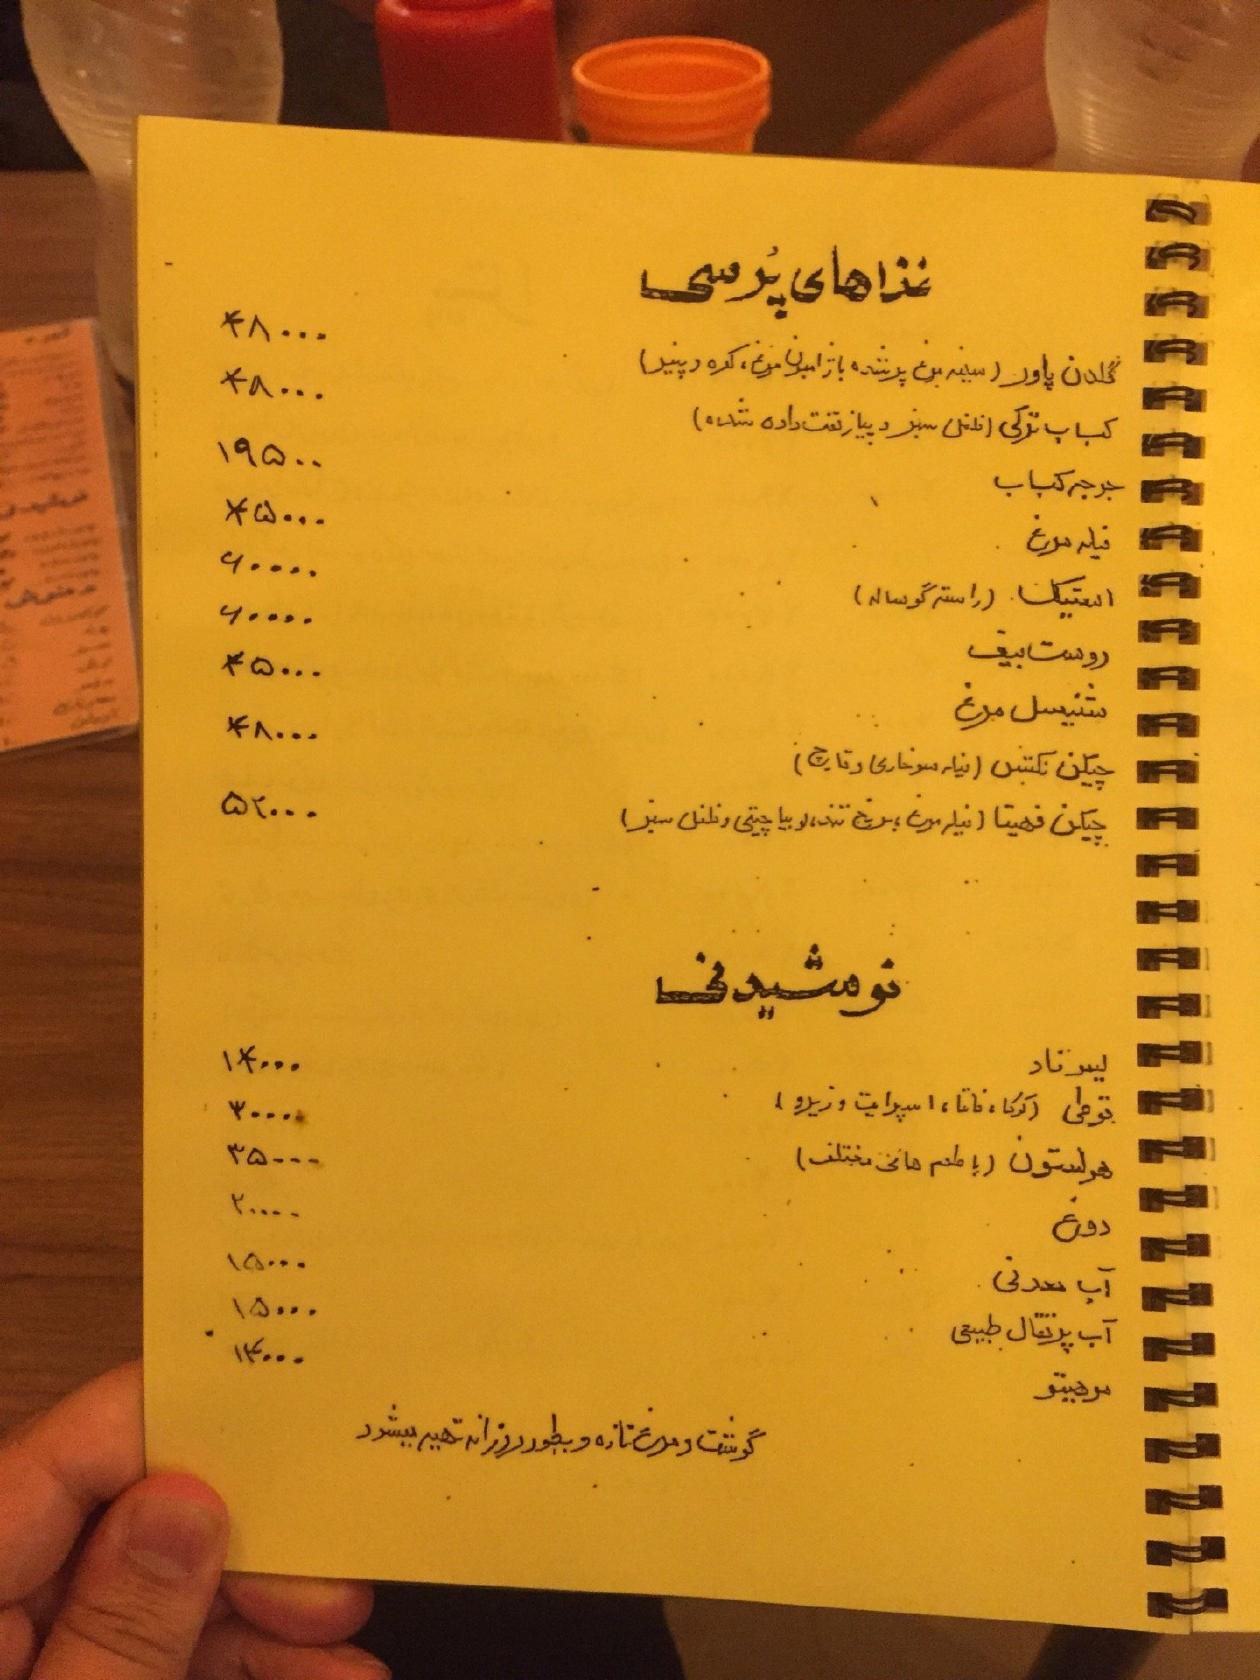 غذاهای پُرسی
گلدن پاور (سینه مرغ پرشده با ژامبون مرغ، کره و پنیر) ۴۸۰۰۰
کباب ترکی (فلفل سبز و پیاز تفت داده شده) ۴۸۰۰۰
جوجه کباب ۱۹۵۰۰
فیله مرغ ۴۵۰۰۰
استیک (راسته گوساله) ۶۰۰۰۰
روست بیف ۶۰۰۰۰
شنیسل مرغ ۴۵۰۰۰
چیکن نگتس (فیله سوخاری و قارچ) ۴۸۰۰۰
چیکن فهیتا (فیله مرغ، برنج تند، لوبیا چیتی و فلفل سبز) ۵۲۰۰۰
نوشیدنی
لیموناد ۱۴۰۰۰
قوطی (کوکا، فانتا، اسپرایت و زیرو) ۳۰۰۰
هولستون (با طعم های مختلف) ۳۵۰۰۰
دوغ ۲۰۰۰۰
آب معدنی ۱۵۰۰۰
آب پرتقال طبیعی ۱۵۰۰۰
موهیتو ۱۴۰۰۰
گوشت و مرغ تازه و بطور روزانه تهیه میشود